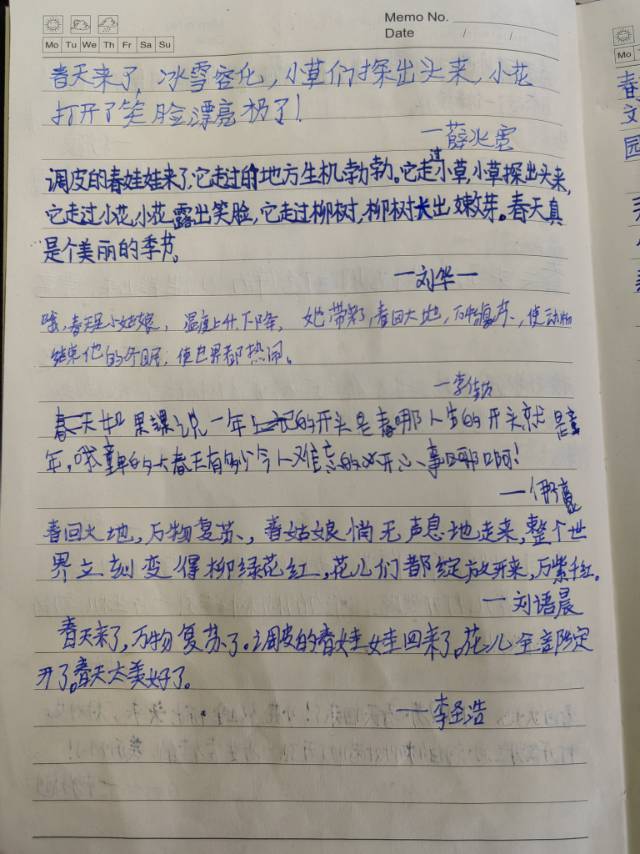 Memo No.
Date / /
Mo Tu We Th Fr Sa Su
春天来了，冰雪容化，小草们探出头来，小花
打开了笑脸漂亮极了！
—薛兆雪
调皮的春娃娃来了，它走过的地方生机勃勃。它走过小草，小草探出头来，
它走过小花，小花露出笑脸，它走过柳树，柳树长出嫩芽。春天真
是个美丽的季节。
—刘华—
春天是小姑娘， 温度上升下降， 她带来了，春回大地，万物复苏、使动物
结束他的冬眠，使世界都热闹。
—李
如果课说一年的开头是春那人生的开头就是童
年，童年的春天有多少令人难忘的开心事啊！
—伊
春回大地，万物复苏、春姑娘悄无声息地走来，整个世
界立刻变得柳绿花红，花儿们都绽放开来，万紫千红。
—刘语晨
春天来了，万物复苏了。调皮的春娃娃回来了。花儿全部绽
开了。春天太美好了。
——李圣浩
Mo
春
文
园